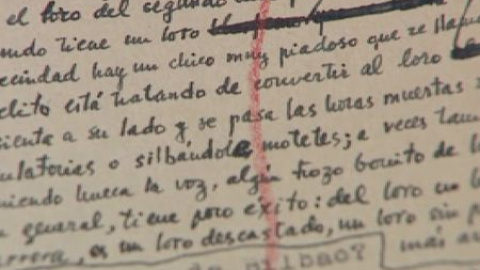 el loro del segundo
tiene un loro
hay un chico muy piadoso que se llama
está tratando de convertir al loro
a su lado y se pasa las horas muertas
o silbándole motetes; a veces tam
hueca la voz, algún trozo bonito de l
general, tiene poco éxito: del loro un l
es un loro descastado, un loro sin
bilbao? más